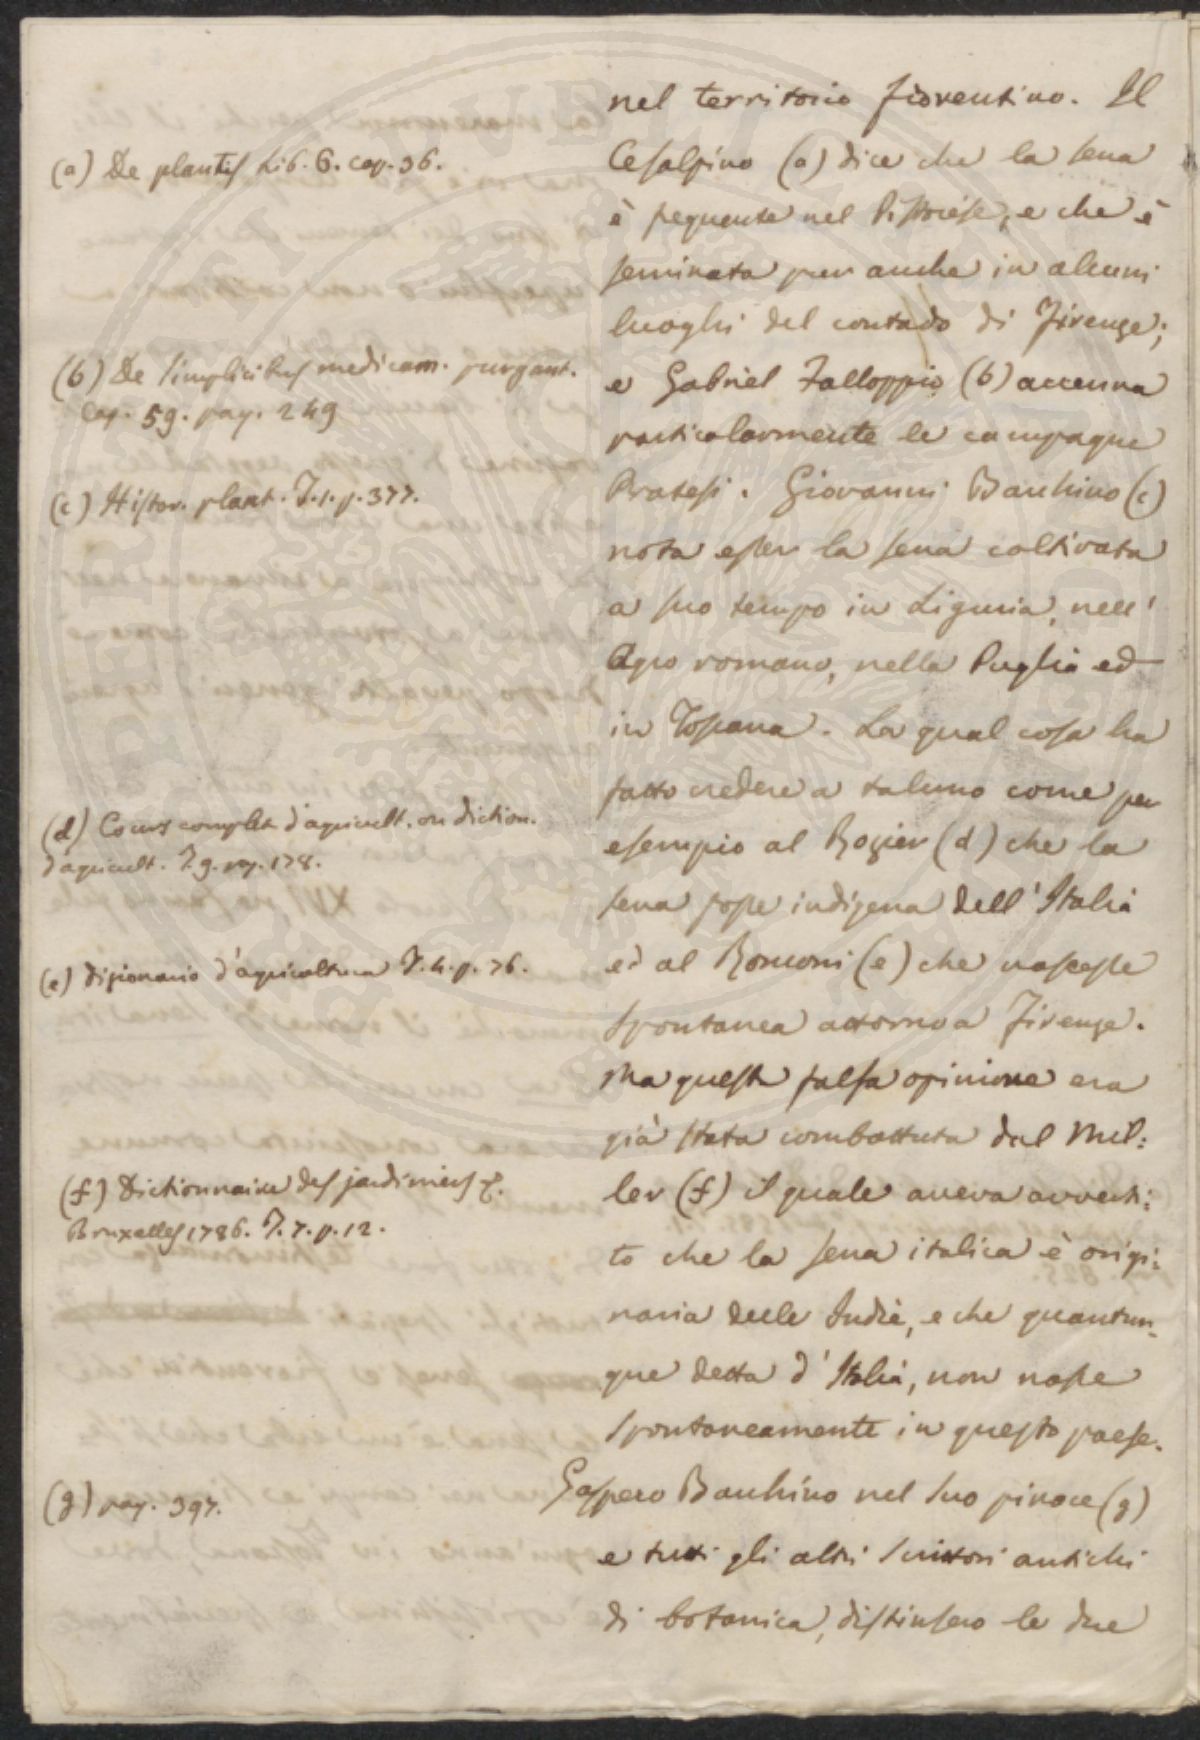 nel territorio fiorentino. Il
Cesalpino (a) dice che la sena
è frequente nel Pistoiese, e che è
seminata pur anche in alcuni
luoghi del contado di Firenze;
e Gabriel Falloppio (b) accenna
particolarmente le campagne
Pratesi. Giovanni Bauhino (c)
nota esser la sena coltivata
a suo tempo in Liguria, nell'
Agro romano, nella Puglia ed
in Toscana. La qual cosa ha
fatto credere a taluno come per
esempio al Rozier (d) che la
sena fosse indigena dell'Italia
ed al Ronconi (e) che nascesse
spontanea attorno a Firenze.
Ma questa falsa opinione era
già stata combattuta dal Mil:
ler (f) il quale aveva avverti:
to che la sena italica è origi:
naria delle Indie, e che quantun-
que detta d'Italia, non nasce
spontaneamente in questo paese.
Gaspero Bauhino nel suo pinace (g)
e tutti gli altri scrittori antichi
di botanica, distinsero le due
(a) De plantis Lib. 6. cap. 36.
(b) De simplicibus medicam. purgant.
Cap. 59. pag. 249
(c) Histor. plant. T. 1. p. 377.
(d) Cours complet d'agricult. ou diction.
d'agricult. T. 9. pag. 178.
(e) Dizionario d'agricoltura T. 4. p. 76.
(f) Dictionnaire des jardiniers &.
Bruxelles 1786. T. 7. p. 12.
(g) pag. 397.